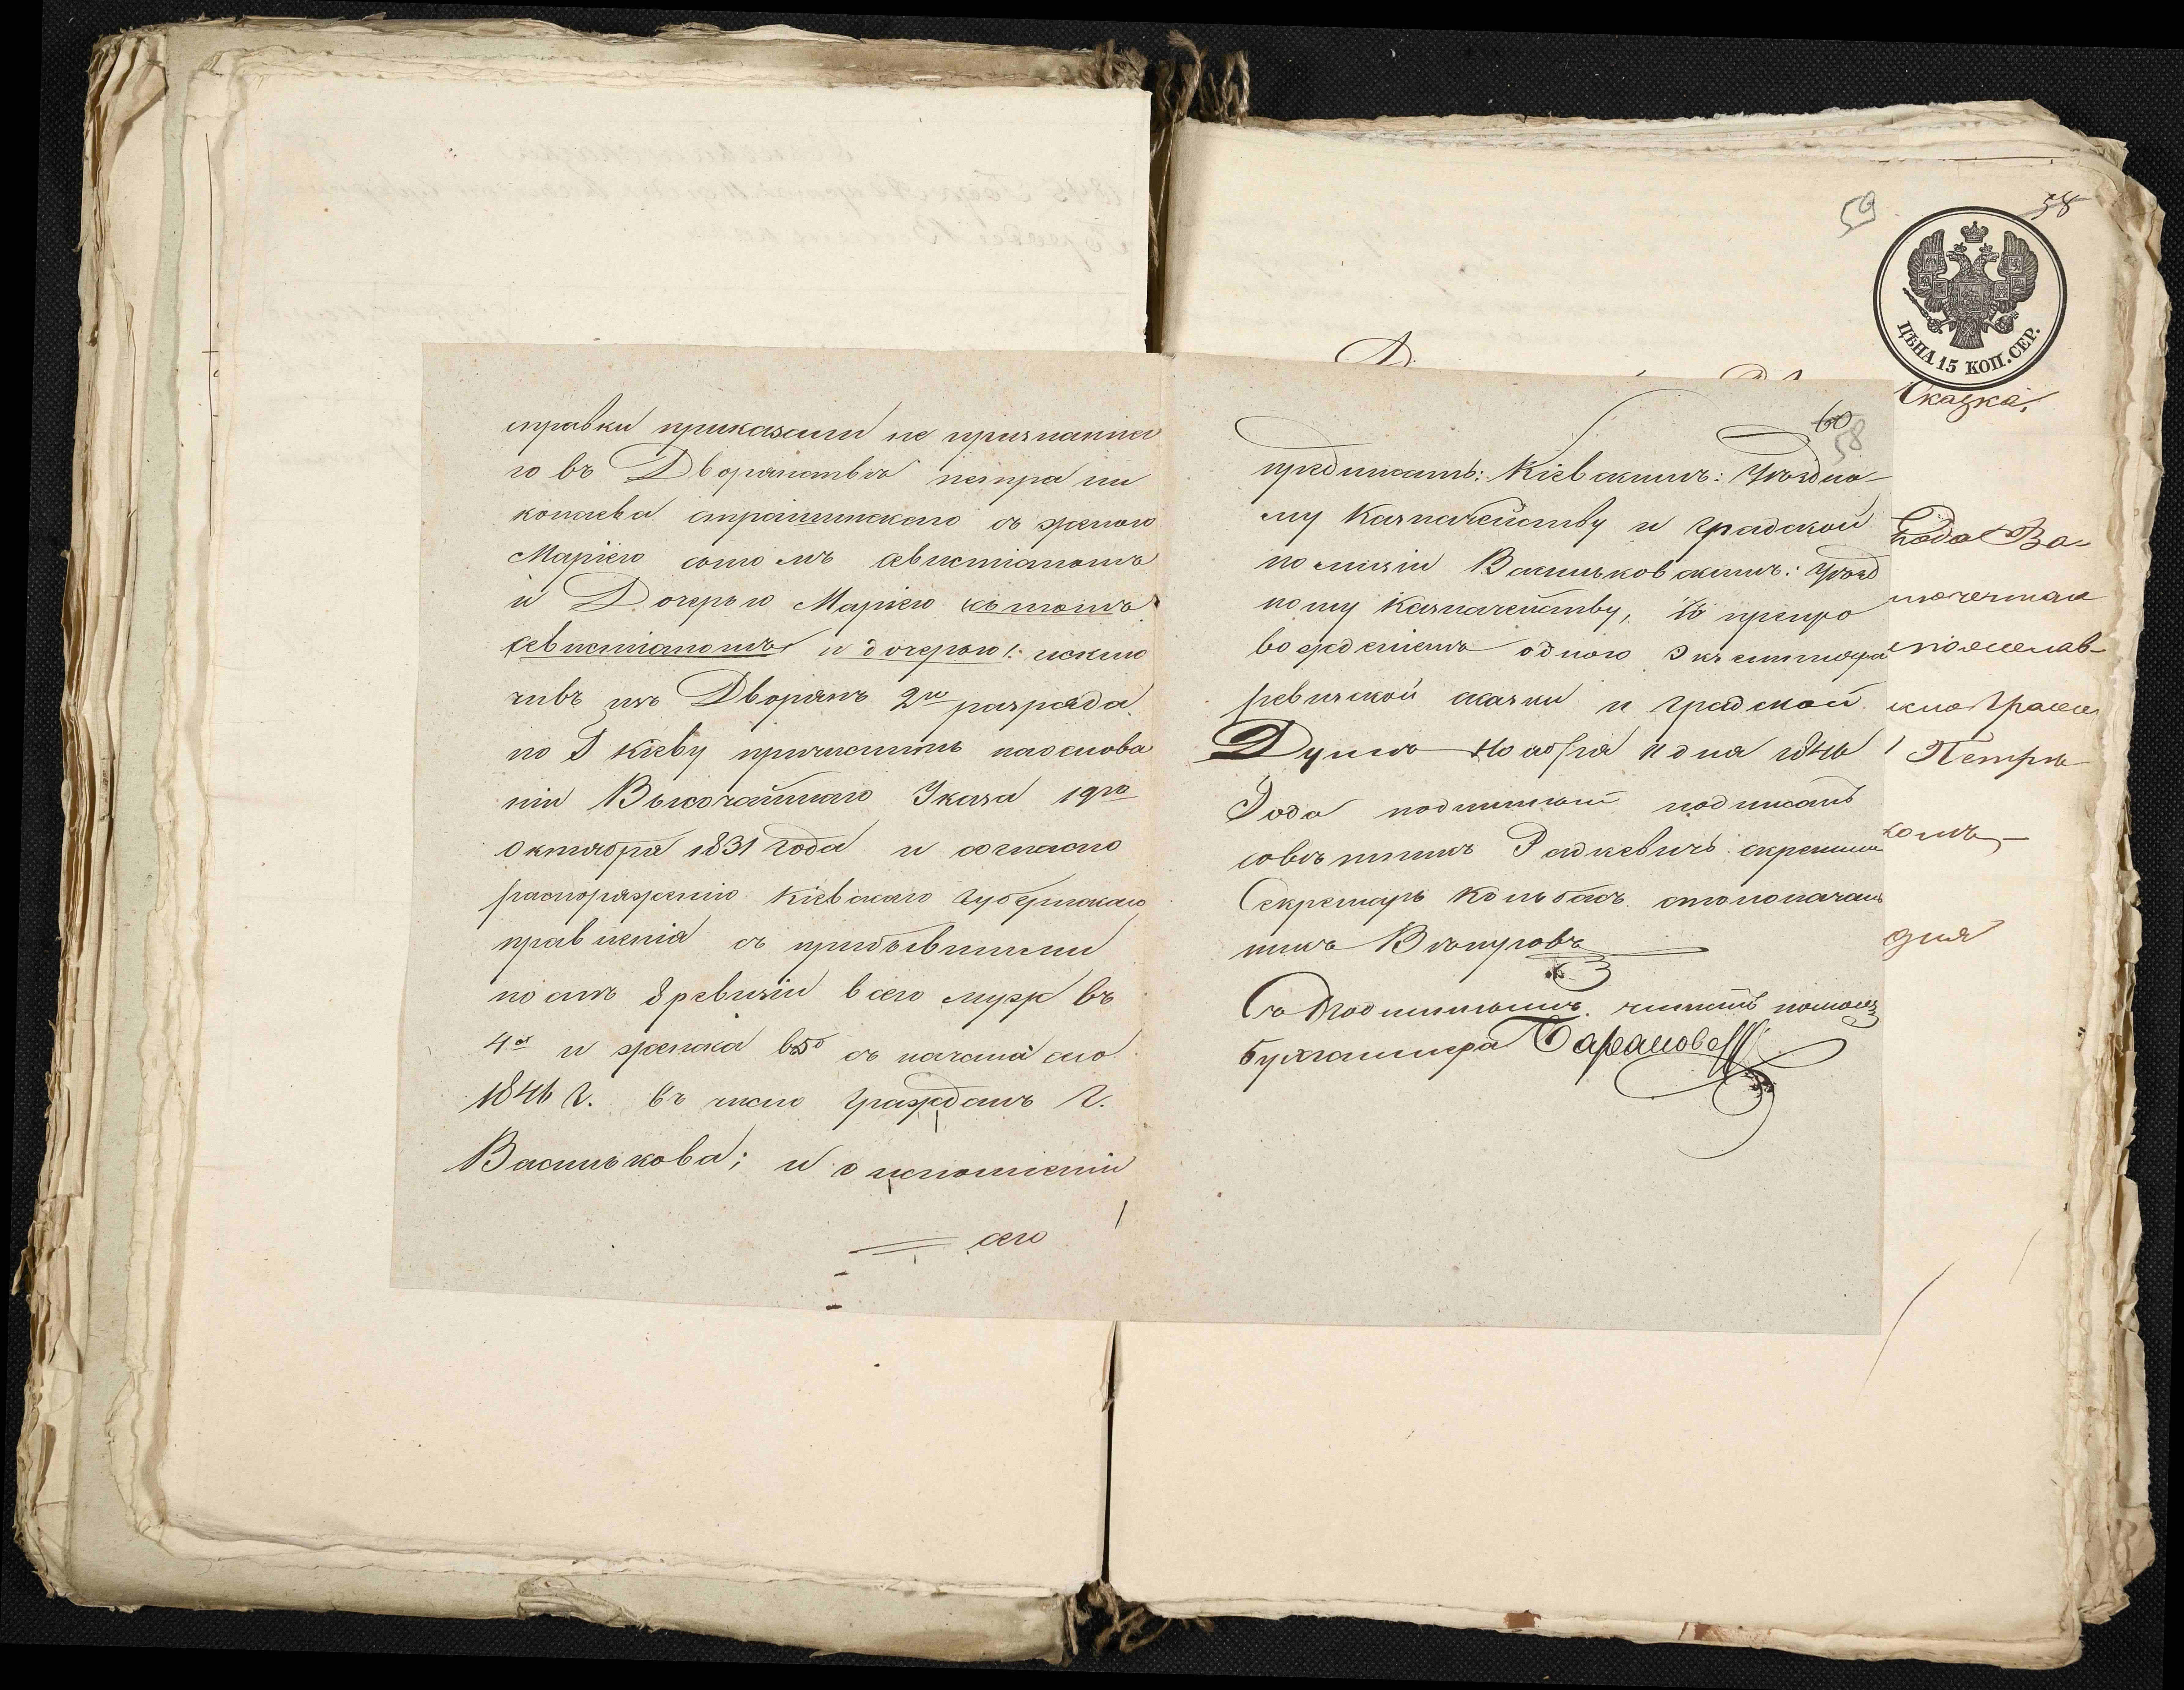 справки приказали не признаннаго
го въ Дворянствѣ петра ни
колаева страшинскаго съ женою
Маріею сыномъ севистіаномъ
и Дочерью Маріею къ томъ
севистіаномъ и дочерью /: исклю
чивъ изъ Дворянъ 2го разряда
по Г Кіеву причислить на основа
ніи Высочайшаго Указа 19го
Октября 1831 года и согласно
распоряженію Кіевскаго Губернскаго
правленія съ прибывшими
послѣ 8 ревизіи всего мужск въ
4хъ и женска въ 5 съ начала сего
1846 г. въ число Гражданъ Г.
Василькова; и о исполненіи
сего
60
58
предписать: Кіевскимъ: Уѣздно-
му Казначейству и градской
полиціи Васильковскимъ: Уѣзд
ному Казначейству, съ препро
вожденіемъ одного Экземпляра
ревизской сказки и градской
Думѣ Ноября дня 1846
Года подлинный подписалъ
совѣтникъ Радкевичъ скрепилъ
Секретарь Кольбасъ столоначаль
никъ Вѣтровъ
Съ Подлиннымъ читалъ помощ
бухгалтера Барановскій
59
58
ЦѢНА 15 КОП. СЕР.
Сказка,
года Ва-
Петръ
дня